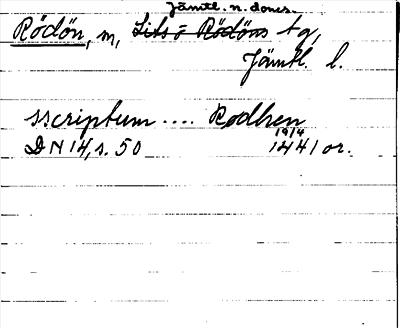 Jämtl. n. doms.
Rödön, m, Lits o Rödöns tg,
Jämtl. l.
sscriptum .... Rodhen
19/4
DN 14, s. 50 1441 or.